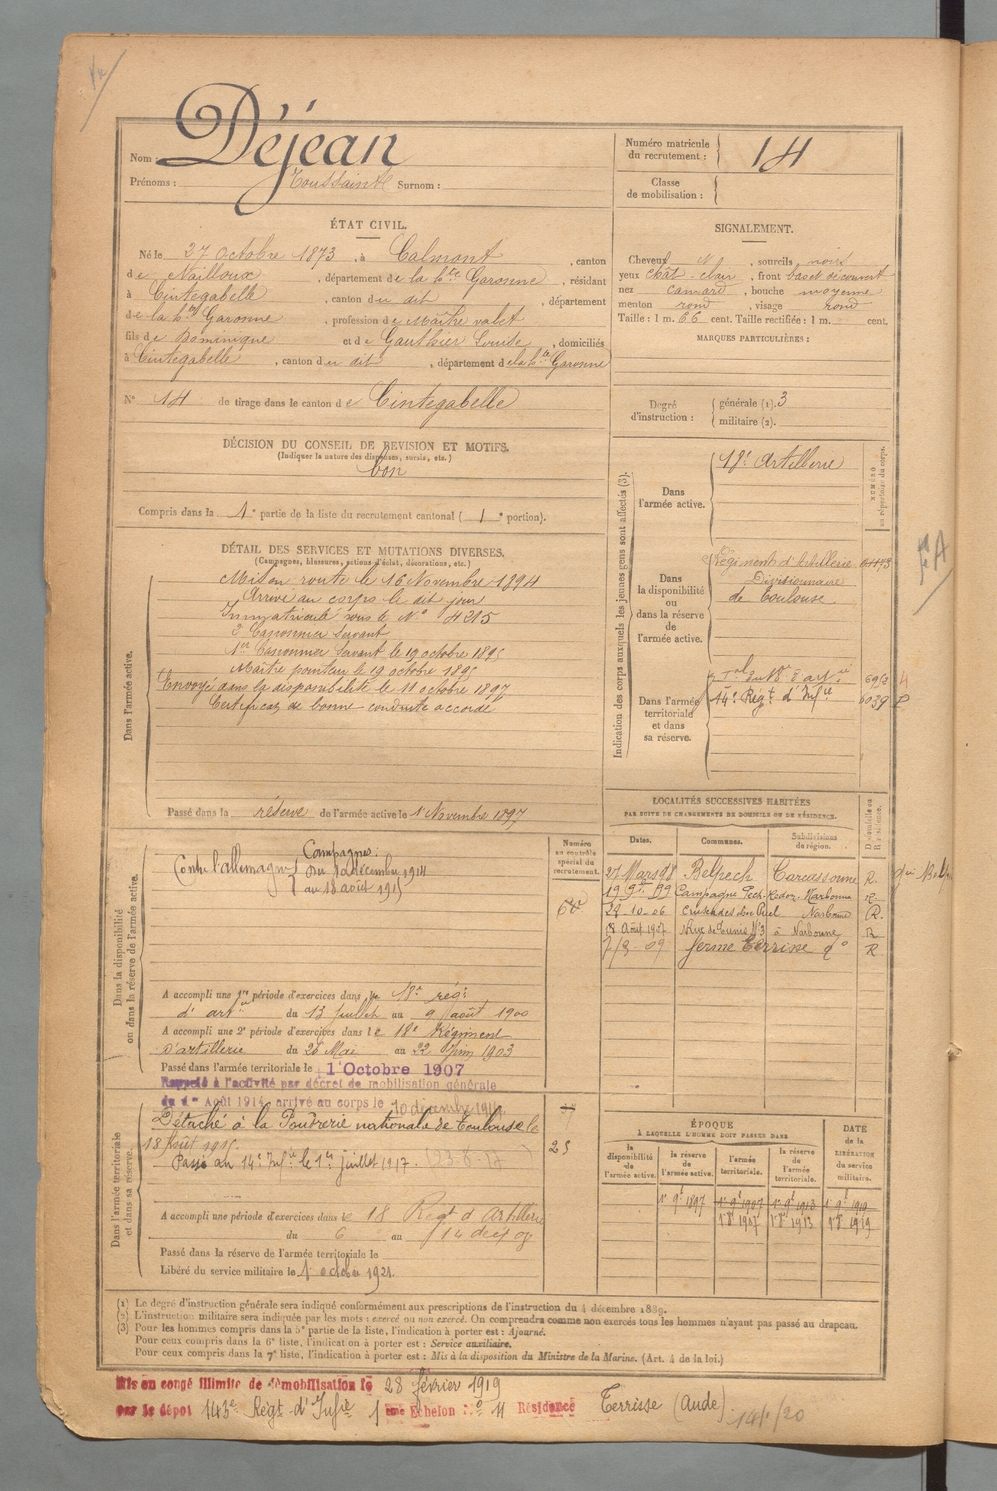 Nom : Déjean
Prénoms : Toussaint Surnom :
Numéro matricule du recrutement : 14
Classe de mobilisation :
ÉTAT CIVIL.
Né le 27 Octobre 1873, à Calmont, canton
de Nailloux, département de la hte Garonne, résidant
à Cintegabelle, canton du dit, département
de la hte Garonne, profession de Maître valet
fils de Dominique et de Gauthier Louise, domiciliés
à Cintegabelle, canton du dit, département de la hte Garonne
N° 14 de tirage dans le canton de Cintegabelle
SIGNALEMENT.
Cheveux N, sourcils noirs
yeux chât-clair, front bas et découvert
nez camard, bouche moyenne
menton rond, visage rond
Taille : 1 m. 66 cent. Taille rectifiée : 1 m. cent.
MARQUES PARTICULIÈRES :
Degré d'instruction : générale (1). 3
militaire (2).
DÉCISION DU CONSEIL DE REVISION ET MOTIFS.
(Indiquer la nature des dispenses, sursis, etc.)
bon
Compris dans la 1e partie de la liste du recrutement cantonal ( 1e portion).
DÉTAIL DES SERVICES ET MUTATIONS DIVERSES.
(Campagnes, blessures, actions d'éclat, décorations, etc.)
Dans l'armée active.
Mis en route le 16 Novembre 1894
Arrivé au corps le dit jour
Immatriculé sous le N° 4315
2e Canonnier Servant
1er Canonnier Servant le 19 octobre 1895
Maître pointeur le 19 octobre 1895
Envoyé dans la disponibilité le 11 octobre 1897
Certificat de bonne conduite accordé
Passé dans la réserve de l'armée active le 1 Novembre 1897
Indication des corps auxquels les jeunes gens sont affectés (3).
NUMÉRO au répertoire du corps.
Dans l'armée active.
18e Artillerie
Dans la disponibilité ou dans la réserve de l'armée active.
Régiment d'Artillerie
Divisionnaire
de Toulouse
Dans l'armée territoriale et dans sa réserve.
14e Régt d'Infie 6039 P
LOCALITÉS SUCCESSIVES HABITÉES
PAR SUITE DE CHANGEMENTS DE DOMICILE OU DE RÉSIDENCE.
Dates. Communes. Subdivisions de région. D domicile ou R résidence.
27 Mars 98 Belpech Carcassonne R.
Narbonne R
27-10-06 Narbonne R.
8 Août 1907 N Rue de Tunis N°3 à Narbonne R
7/3-09 ferme Terrisse do R
Dans la disponibilité ou dans la réserve de l'armée active.
Numéro au contrôle spécial du recrutement.
Campagnes :
Contre l'allemagne du 10 décembre 1914
au 18 août 1915
A accompli une 1re période d'exercices dans le 18e régt
d'artie du 13 juillet au 9 août 1900
A accompli une 2e période d'exercices dans le 18e Régiment
d'artillerie du 26 Mai au 22 Juin 1903
Passé dans l'armée territoriale le 1 Octobre 1907
Rappelé à l'activité par décret de mobilisation générale
du 1er Août 1914, arrivé au corps le 10 décembre 1914.
Dans l'armée territoriale et dans sa réserve.
Détaché à la Poudrerie nationale de Toulouse le
18 Août 1915.
Passé au 14e Infie le 1er juillet 1917. (23-8-17)
25
A accompli une période d'exercices dans le 18 Régt d'Artillerie
du 6 au 14
Passé dans la réserve de l'armée territoriale le
Libéré du service militaire le 1 octobre 1921.
ÉPOQUE
À LAQUELLE L'HOMME DOIT PASSER DANS
la disponibilité de l'armée active. la réserve de l'armée active. l'armée territoriale. la réserve de l'armée territoriale.
DATE de la LIBÉRATION du service militaire.
1er 9e 1897 1er 9e 1907 1er 9e 1913 1er 9e 1919
1er 8e 1907 1er 8e 1913 1er 8e 1919
(1) Le degré d'instruction générale sera indiqué conformément aux prescriptions de l'instruction du 4 décembre 1889.
(2) L'instruction militaire sera indiquée par les mots : exercé ou non exercé. On comprendra comme non exercés tous les hommes n'ayant pas passé au drapeau.
(3) Pour les hommes compris dans la 5e partie de la liste, l'indication à porter est : Ajourné.
Pour ceux compris dans la 6e liste, l'indication à porter est : Service auxiliaire.
Pour ceux compris dans la 7e liste, l'indication à porter est : Mis à la disposition du Ministre de la Marine. (Art. 4 de la loi.)
Mis en congé illimité de démobilisation le 28 février 1919
par le dépôt 143e Régt d'Infie 1ème Echelon N° 11 Résidence Terrisse (Aude)